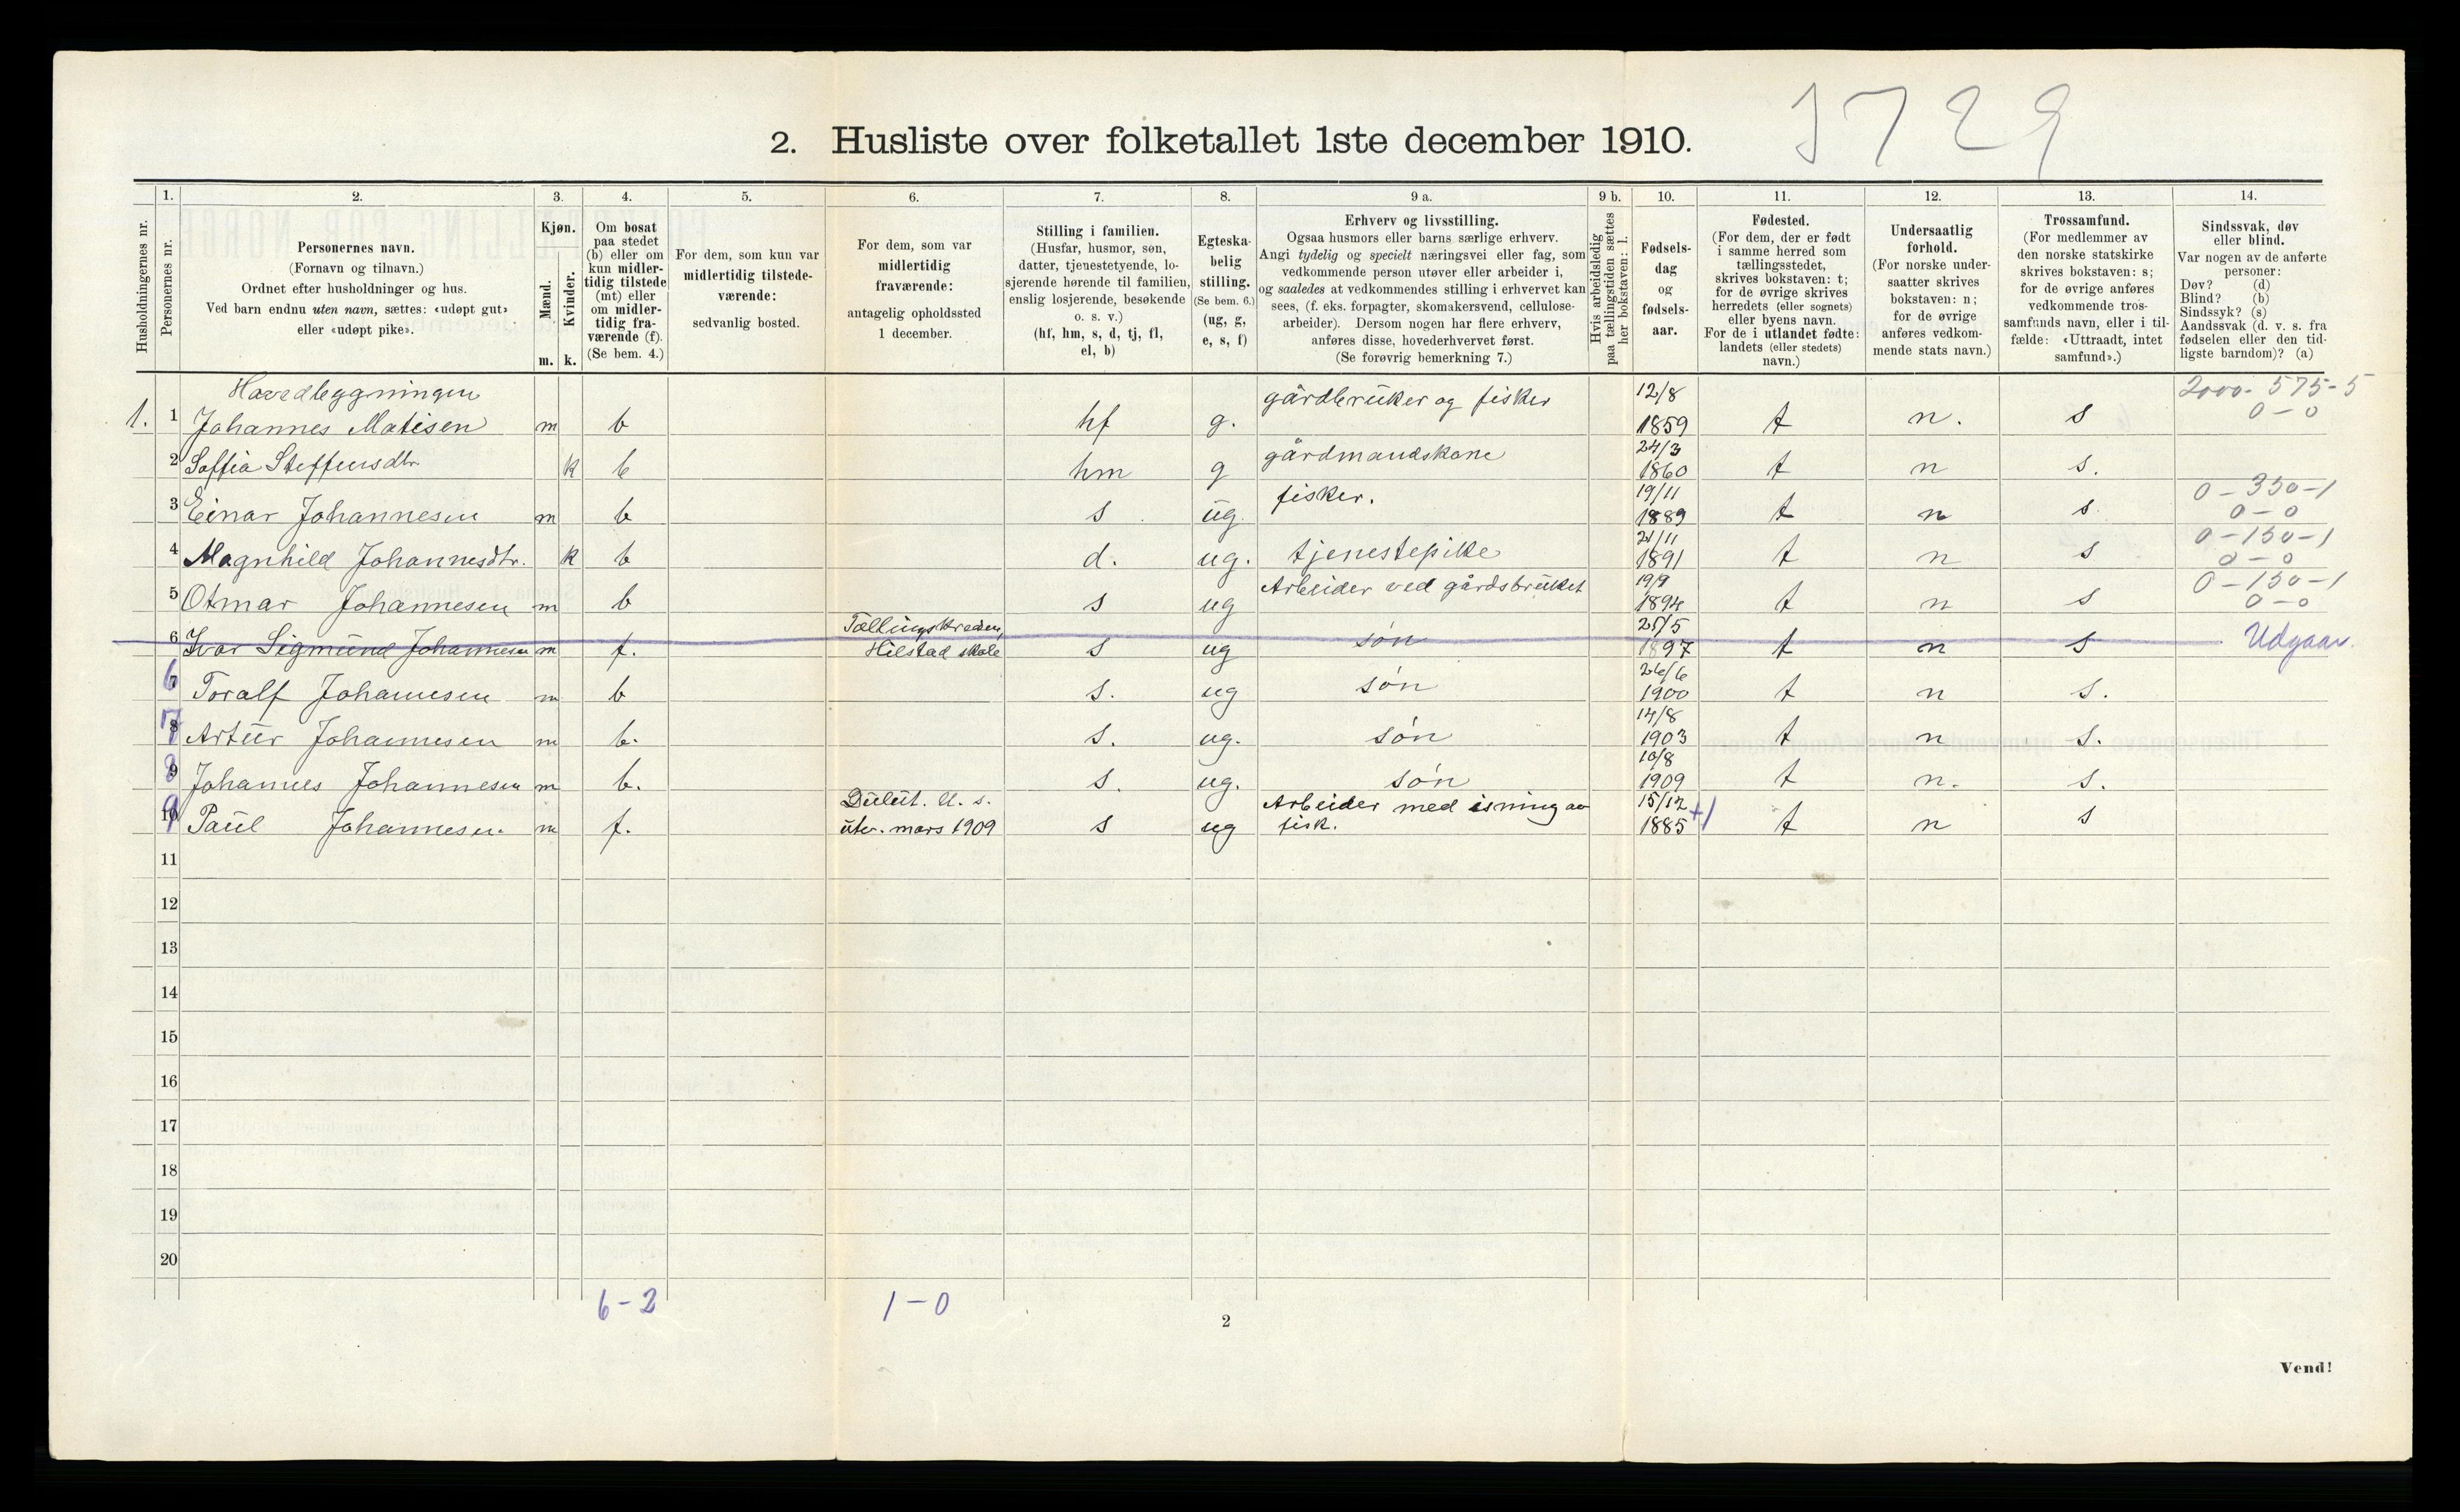 1729
2. Husliste over folketallet 1ste december 1910.
Husholdningernes nr.
1.
Personernes nr.
2.
Personernes navn.
(Fornavn og tilnavn.)
Ordnet efter husholdninger og hus.
Ved barn endnu uten navn, sættes: «udøpt gut»
eller «udøpt pike».
3.
Kjøn.
Mænd.
Kvinder.
m. k.
4.
Om bosat
paa stedet
(b) eller om
kun midler-
tidig tilstede
(mt) eller
om midler-
tidig fra-
værende (f).
(Se bem. 4.)
5.
For dem, som kun var
midlertidig tilstede-
værende:
sedvanlig bosted.
6.
For dem, som var
midlertidig
fraværende:
antagelig opholdssted
1 december.
7.
Stilling i familien.
(Husfar, husmor, søn,
datter, tjenestetyende, lo-
sjerende hørende til familien,
enslig losjerende, besøkende
o. s. v.)
(hf, hm, s, d, tj, fl,
el, b)
8.
Egteska-
belig
stilling.
(Se bem. 6.)
(ug, g,
e, s, f)
9 a.
Erhverv og livsstilling.
Ogsaa husmors eller barns særlige erhverv.
Angi tydelig og specielt næringsvei eller fag, som
vedkommende person utøver eller arbeider i,
og saaledes at vedkommendes stilling i erhvervet kan
sees, (f. eks. forpagter, skomakersvend, cellulose-
arbeider). Dersom nogen har flere erhverv,
anføres disse, hovederhvervet først.
(Se forøvrig bemerkning 7.)
9 b.
Hvis arbeidsledig
paa tællingstiden sættes
her bokstaven: l.
10.
Fødsels-
dag
og
fødsels-
aar.
11.
Fødested.
(For dem, der er født
i samme herred som
tællingsstedet,
skrives bokstaven: t;
for de øvrige skrives
herredets (eller sognets)
eller byens navn.
For de i utlandet fødte:
landets (eller stedets)
navn.)
12.
Undersaatlig
forhold.
(For norske under-
saatter skrives
bokstaven: n;
for de øvrige
anføres vedkom-
mende stats navn.)
13.
Trossamfund.
(For medlemmer av
den norske statskirke
skrives bokstaven: s;
for de øvrige anføres
vedkommende tros-
samfunds navn, eller i til-
fælde: «Uttraadt, intet
samfund».)
14.
Sindssvak, døv
eller blind.
Var nogen av de anførte
personer:
Døv? (d)
Blind? (b)
Sindssyk? (s)
Aandssvak (d. v. s. fra
fødselen eller den tid-
ligste barndom)? (a)
Havedleggningen gårdbruker og fisker 12/8 2000-575-5
1. 1 Johannes Matisen m b hf g. 1859 t n. s 0-0
2 Soffia Steffensdtr. k b hm g gårdmandskone 24/3 1860 t n s.
3 Einar Johannesen m b s ug. fisker. 19/11 1889 t n s 0-350-1 0-0
4 Magnhild Johannesdtr. k b d. ug. tjenestepike 21/11 1891 t n s 0-150-1 0-0
5 Otmar Johannesen m b s ug Arbeider ved gårdsbruket 19/9 1894 t n s 0-150-1 0-0
6 Ivar Sigmund Johannesen m f. Tællingskredsen, Hilstad skole s ug søn 25/5 1897 t n s Udgaar.
6 Toralf Johannesen m b s. ug søn 26/6 1900 t n s.
7 8 Artur Johannesen m b. s. ug. søn 14/8 1903 t n s.
8 9 Johannes Johannesen m b. s. ug. søn 10/8 1909 t n. s.
9 10 Paul Johannesen m f. Dulut. U. s. utv. mars 1909 s ug Arbeider med isning av fisk. 15/12 1885 +1 t n s
11
12
13
14
15
16
17
18
19
20
6-2 1-0
2
Vend!